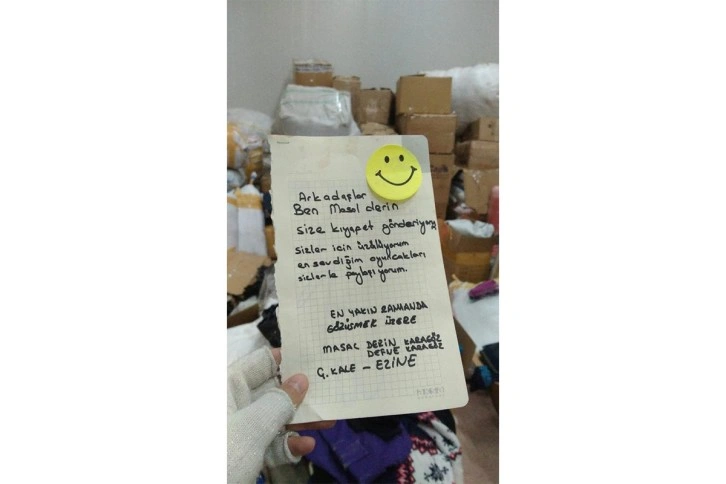 Arkadaşlar
Ben Masal derin
size kıyafet gönderiyorum
sizler için üzülüyorum
en sevdiğim oyuncakları
sizlerle paylaşıyorum.
EN YAKIN ZAMANDA
GÖRÜŞMEK ÜZERE
MASAL DERİN KARAGÖZ
DEFNE KARAGÖZ
Ç.KALE - EZİNE